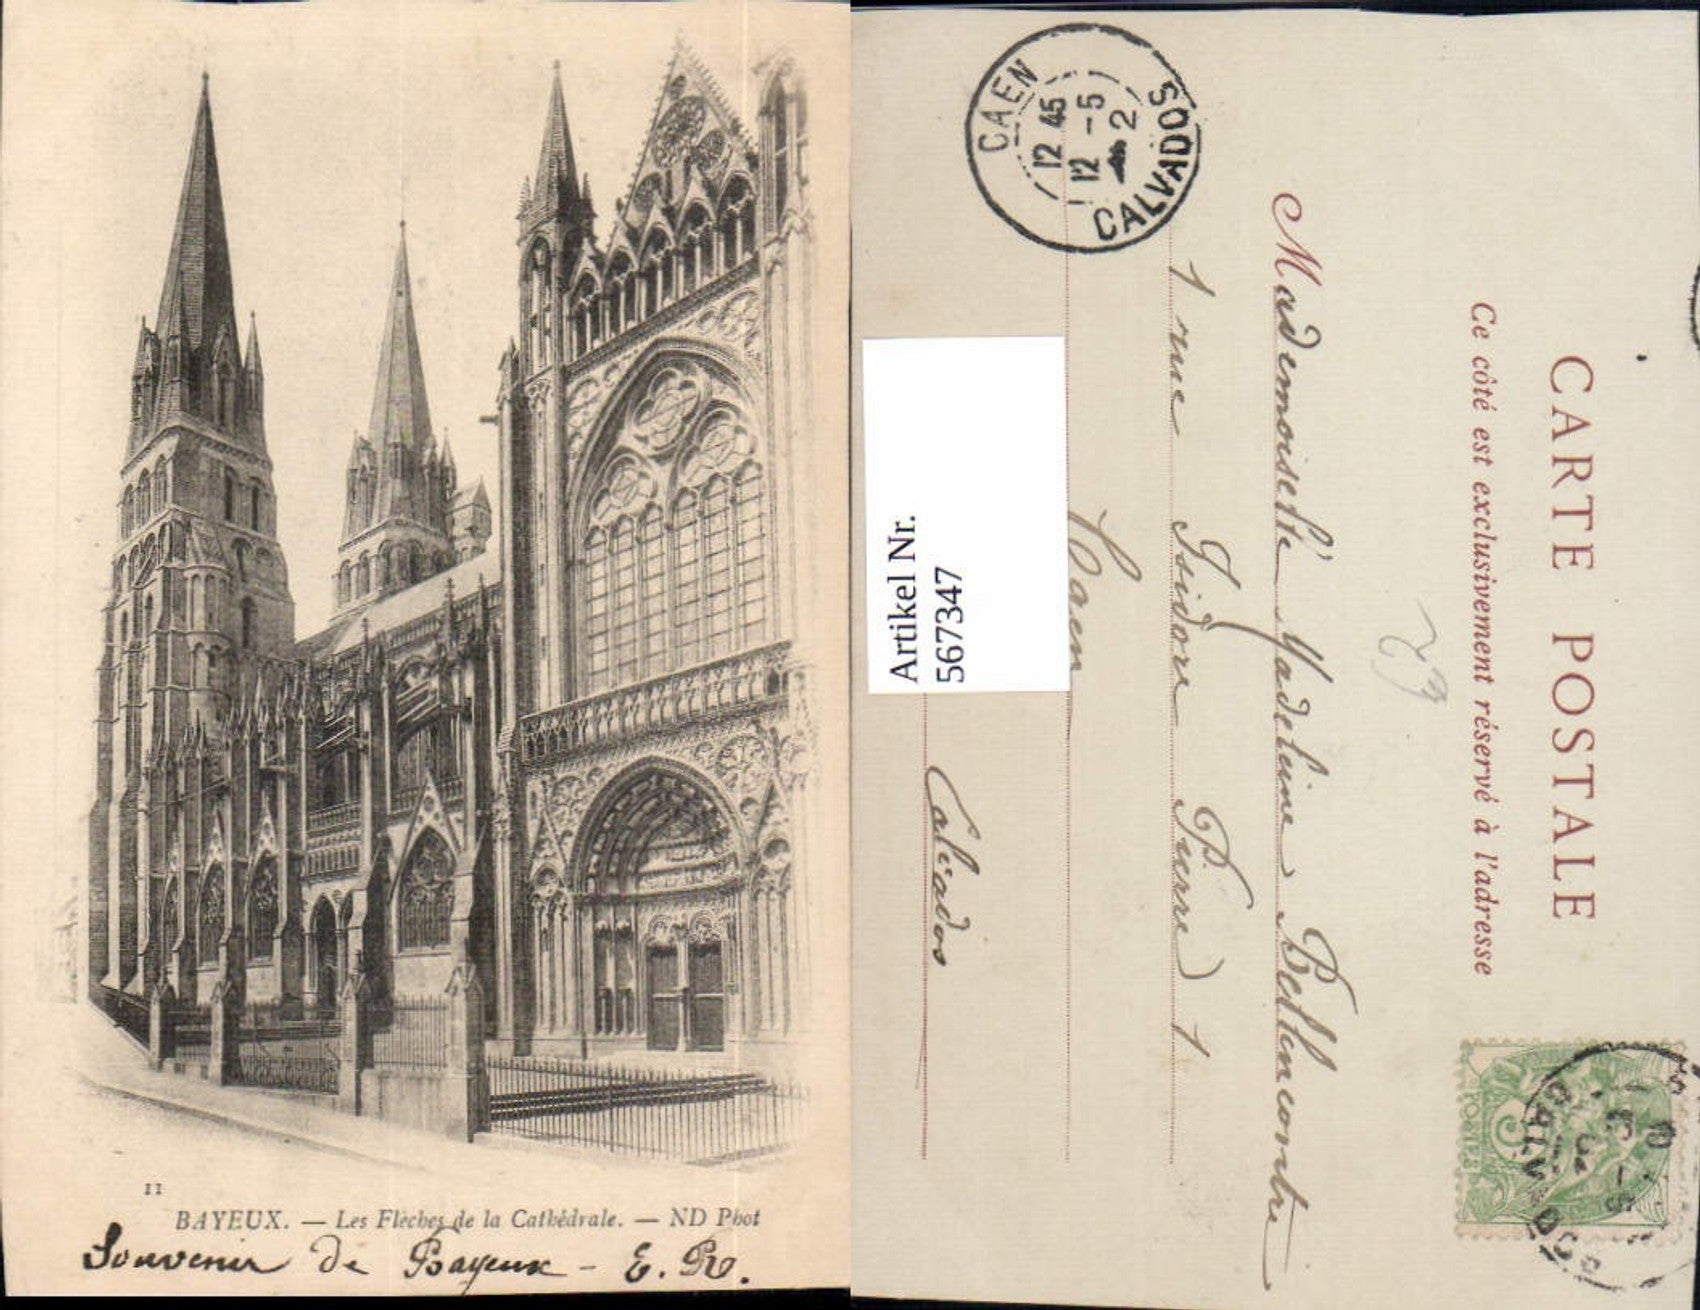 11
BAYEUX. — Les Flèches de la Cathédrale. — ND Phot
Souvenir de Bayeux - E. R.
CARTE POSTALE
Ce côté est exclusivement réservé à l'adresse
Mademoiselle Madeleine Bellencontre
1 rue Isidore Pierre 1
Caen
Calvados
CAEN
12 45
12 -5
2
CALVADOS
Artikel Nr.
567347
5
POSTES